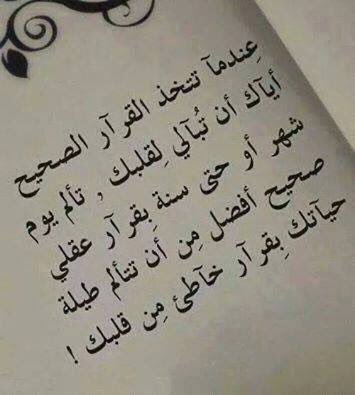 عِندمآ تتخذ القرآر الصحيح
أيآك أن تُبآلي لِقلبك , تألم يوم
شهر أو حتى سنة بِقرآر عقلي
صحيح أفضل مِن أن تتألم طيلة
حيآتك بِقرآر خآطئ مِن قلبك !